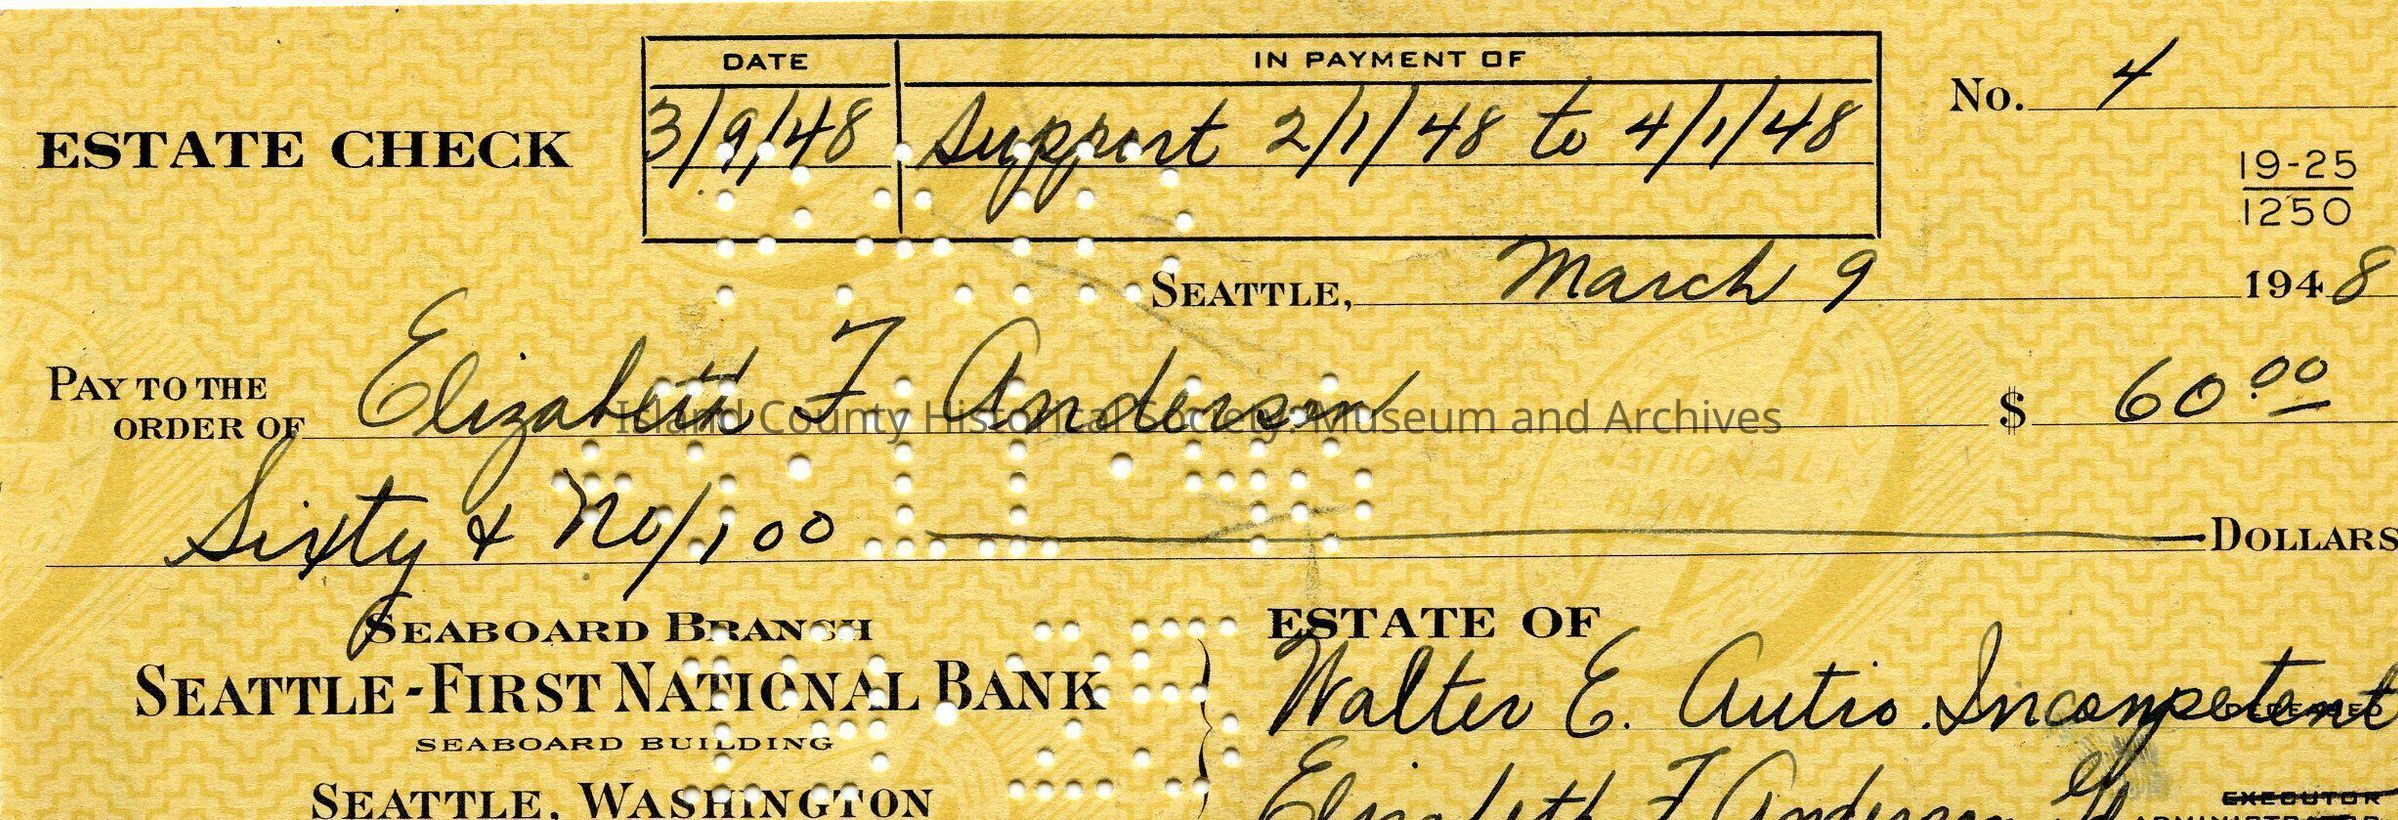 DATE IN PAYMENT OF
No. 4
ESTATE CHECK 3/9/48 Support 2/1/48 to 4/1/48
19-25
1250
SEATTLE, March 9 1948
PAY TO THE
ORDER OF Elizabeth F Anderson $ 60.00
Island County Historical Society: Museum and Archives
Sixty & No/100 DOLLARS
SEABOARD BRANCH
SEATTLE-FIRST NATIONAL BANK
SEABOARD BUILDING
SEATTLE, WASHINGTON
ESTATE OF
Walter E. Autio. Incompetent
Elizabeth F Anderson
EXECUTOR
PAID